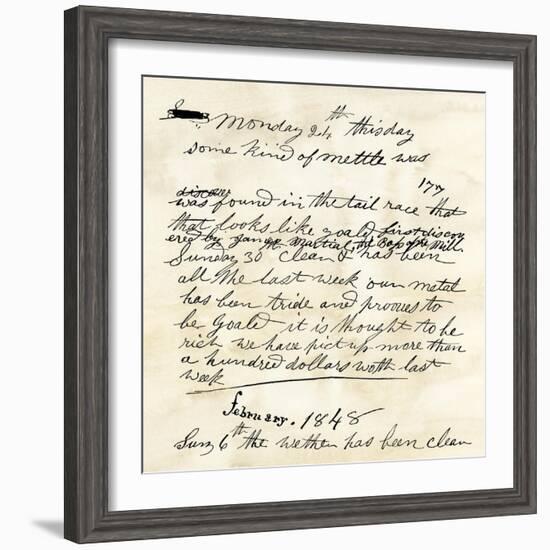 Monday 24th this day
some kind of mettle was
177
discover
was found in the tail race that
that looks like goald first discov
ered by James Martial, the Boss of the Mill
Sunday 30 clear & has been
all the last week our metal
has been tride and prooves to
be goald it is thought to be
rich we have pict up more than
a hundred dollars worth last
week
february. 1848
Sun 6th the wether has been clear